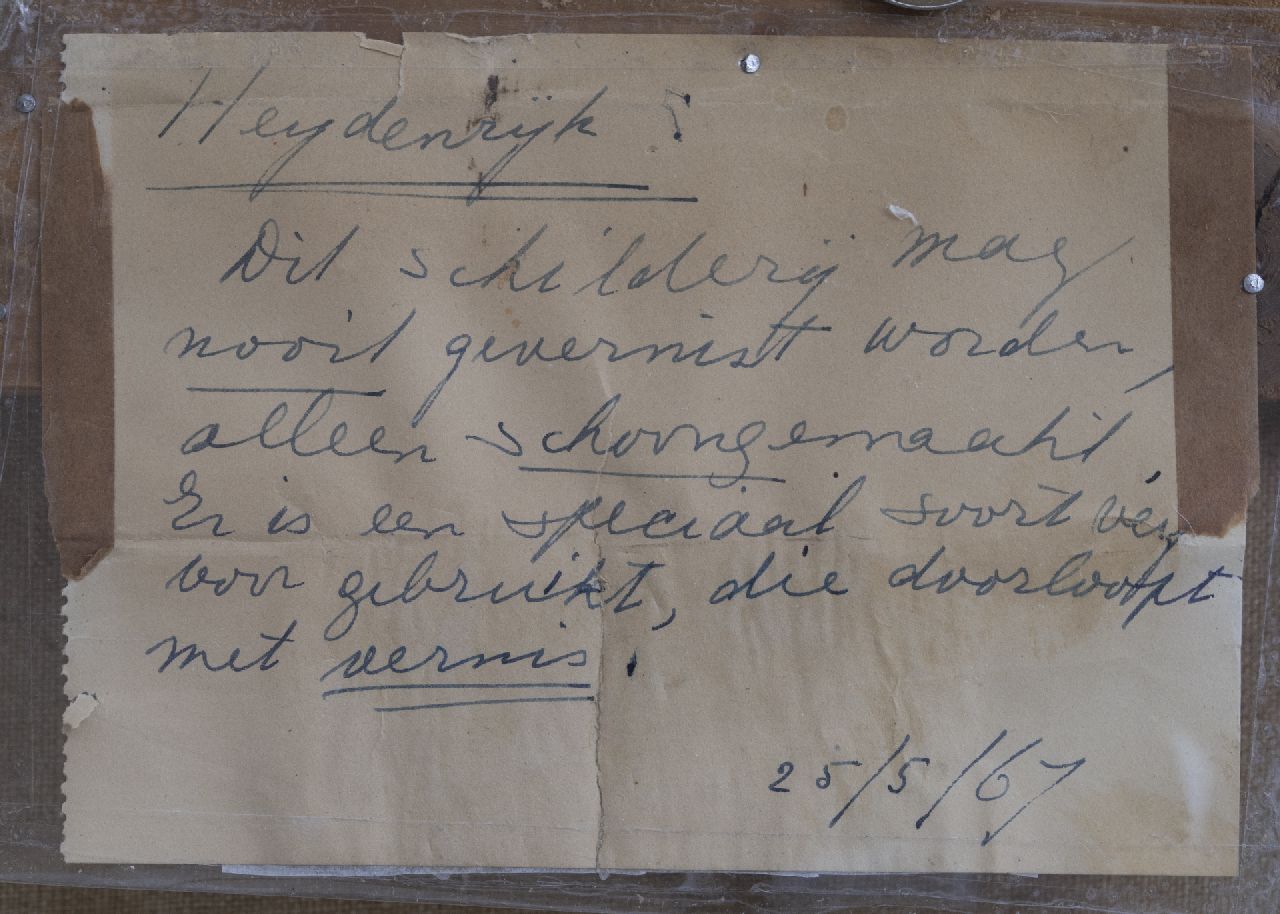 Heydenrijk ?
Dit schilderij mag
nooit gevernist worden,
alleen schoongemaakt
Er is een speciaal soort verf
voor gebruikt, die doorloopt
met vernis!
25/5/67